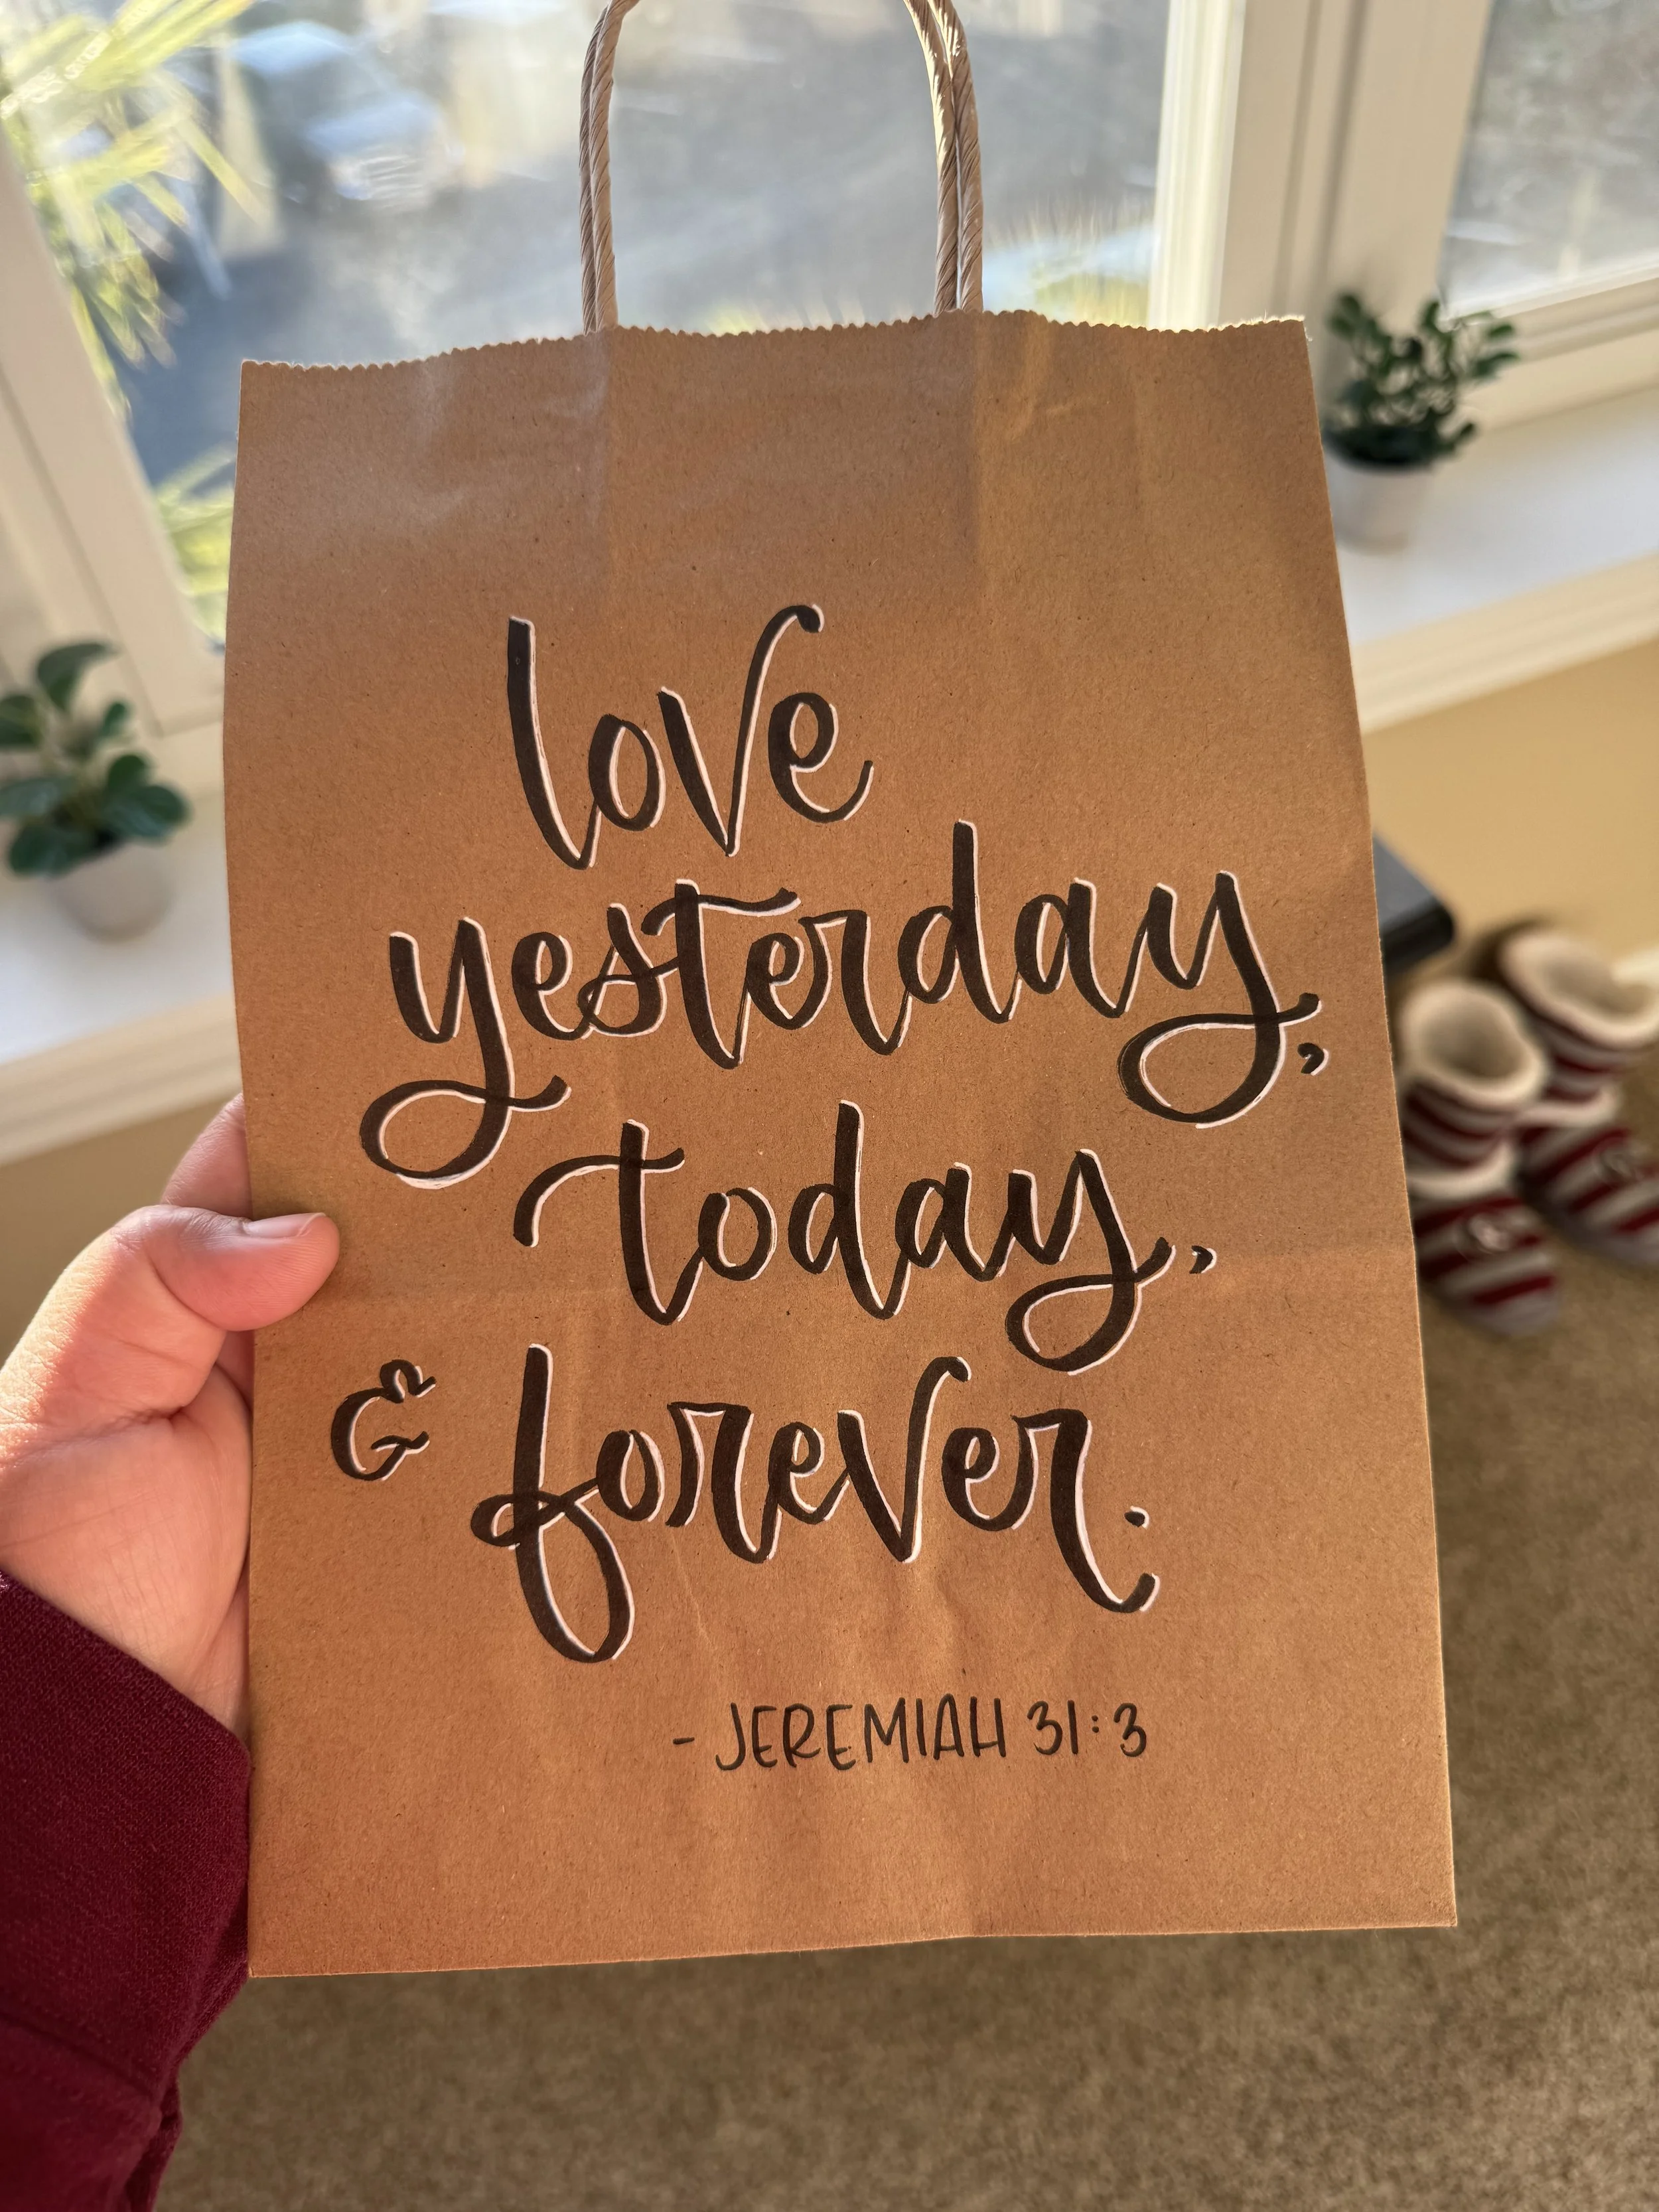 love
yesterday,
today,
& forever.
- JEREMIAH 31:3